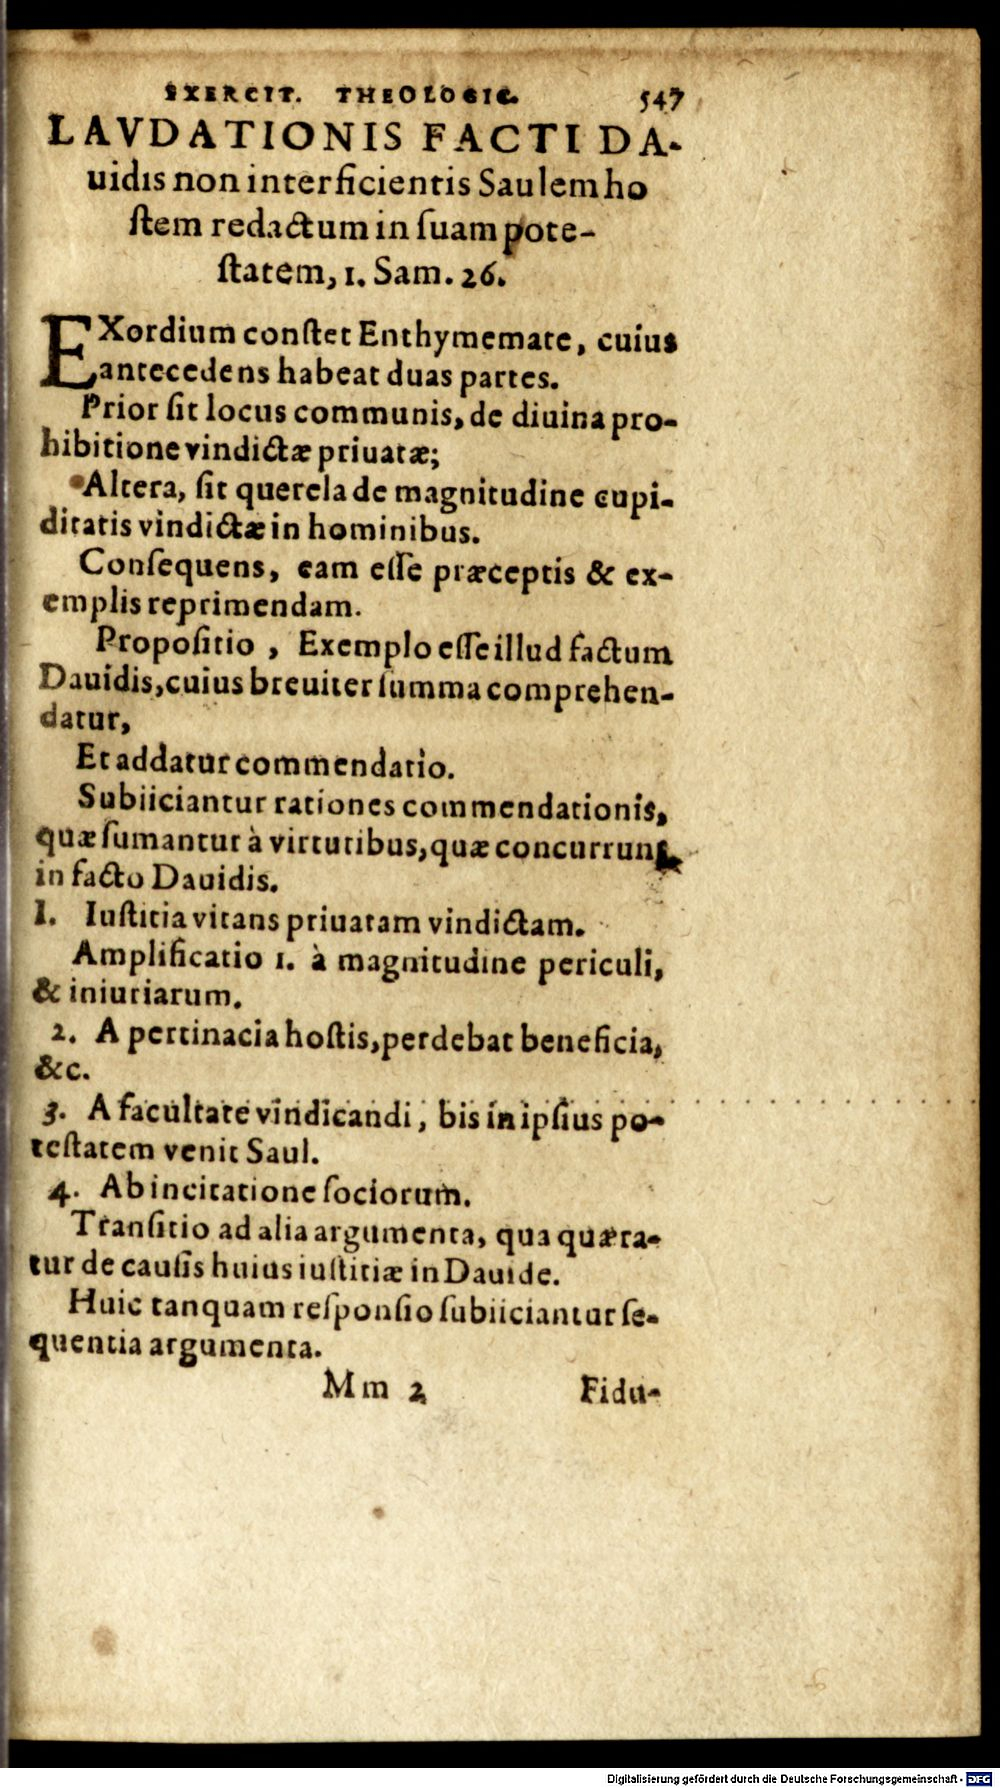 EXERCIT. THEOLOGIC. 547
LAVDATIONIS FACTI DA-
uidis non interficientis Saulem ho
ſtem redactum in ſuam pote-
ſtatem, 1. Sam. 26.
EXordium conſtet Enthymemate, cuius
antecedens habeat duas partes.
Prior ſit locus communis, de diuina pro-
hibitione vindictæ priuatæ;
Altera, ſit querela de magnitudine cupi-
ditatis vindictæ in hominibus.
Conſequens, eam eſſe præceptis & ex-
emplis reprimendam.
Propoſitio, Exemplo eſſe illud factum
Dauidis, cuius breuiter ſumma comprehen-
datur,
Et addatur commendatio.
Subiiciantur rationes commendationis,
quæ ſumantur à virtutibus, quæ concurrunt
in facto Dauidis.
1. Iuſtitia vitans priuatam vindictam.
Amplificatio 1. à magnitudine periculi,
& iniuriarum.
2. A pertinacia hoſtis, perdebat beneficia,
&c.
3. A facultate vindicandi, bis in ipſius po-
teſtatem venit Saul.
4. Ab incitatione ſociorum.
Tranſitio ad alia argumenta, qua quæra-
tur de cauſis huius iuſtitiæ in Dauide.
Huic tanquam reſponſio ſubiiciantur ſe-
quentia argumenta.
Mm 2 Fidu-
Digitalisierung gefördert durch die Deutsche Forschungsgemeinschaft - DFG